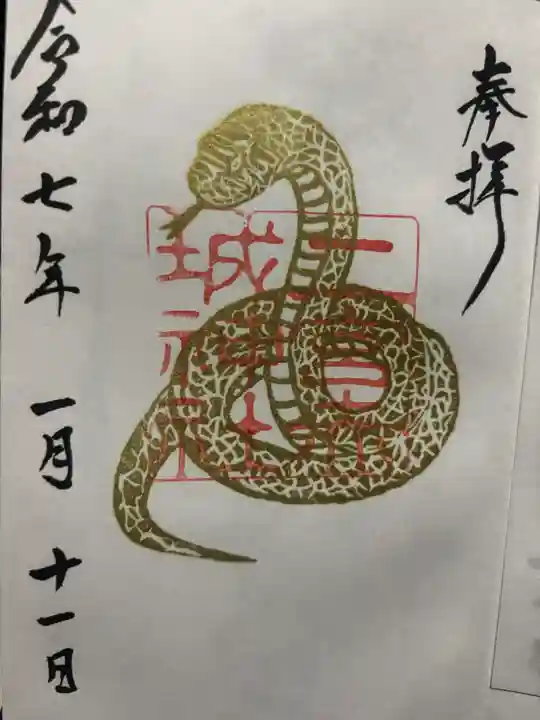 奉拝
城神社
令和七年一月十一日